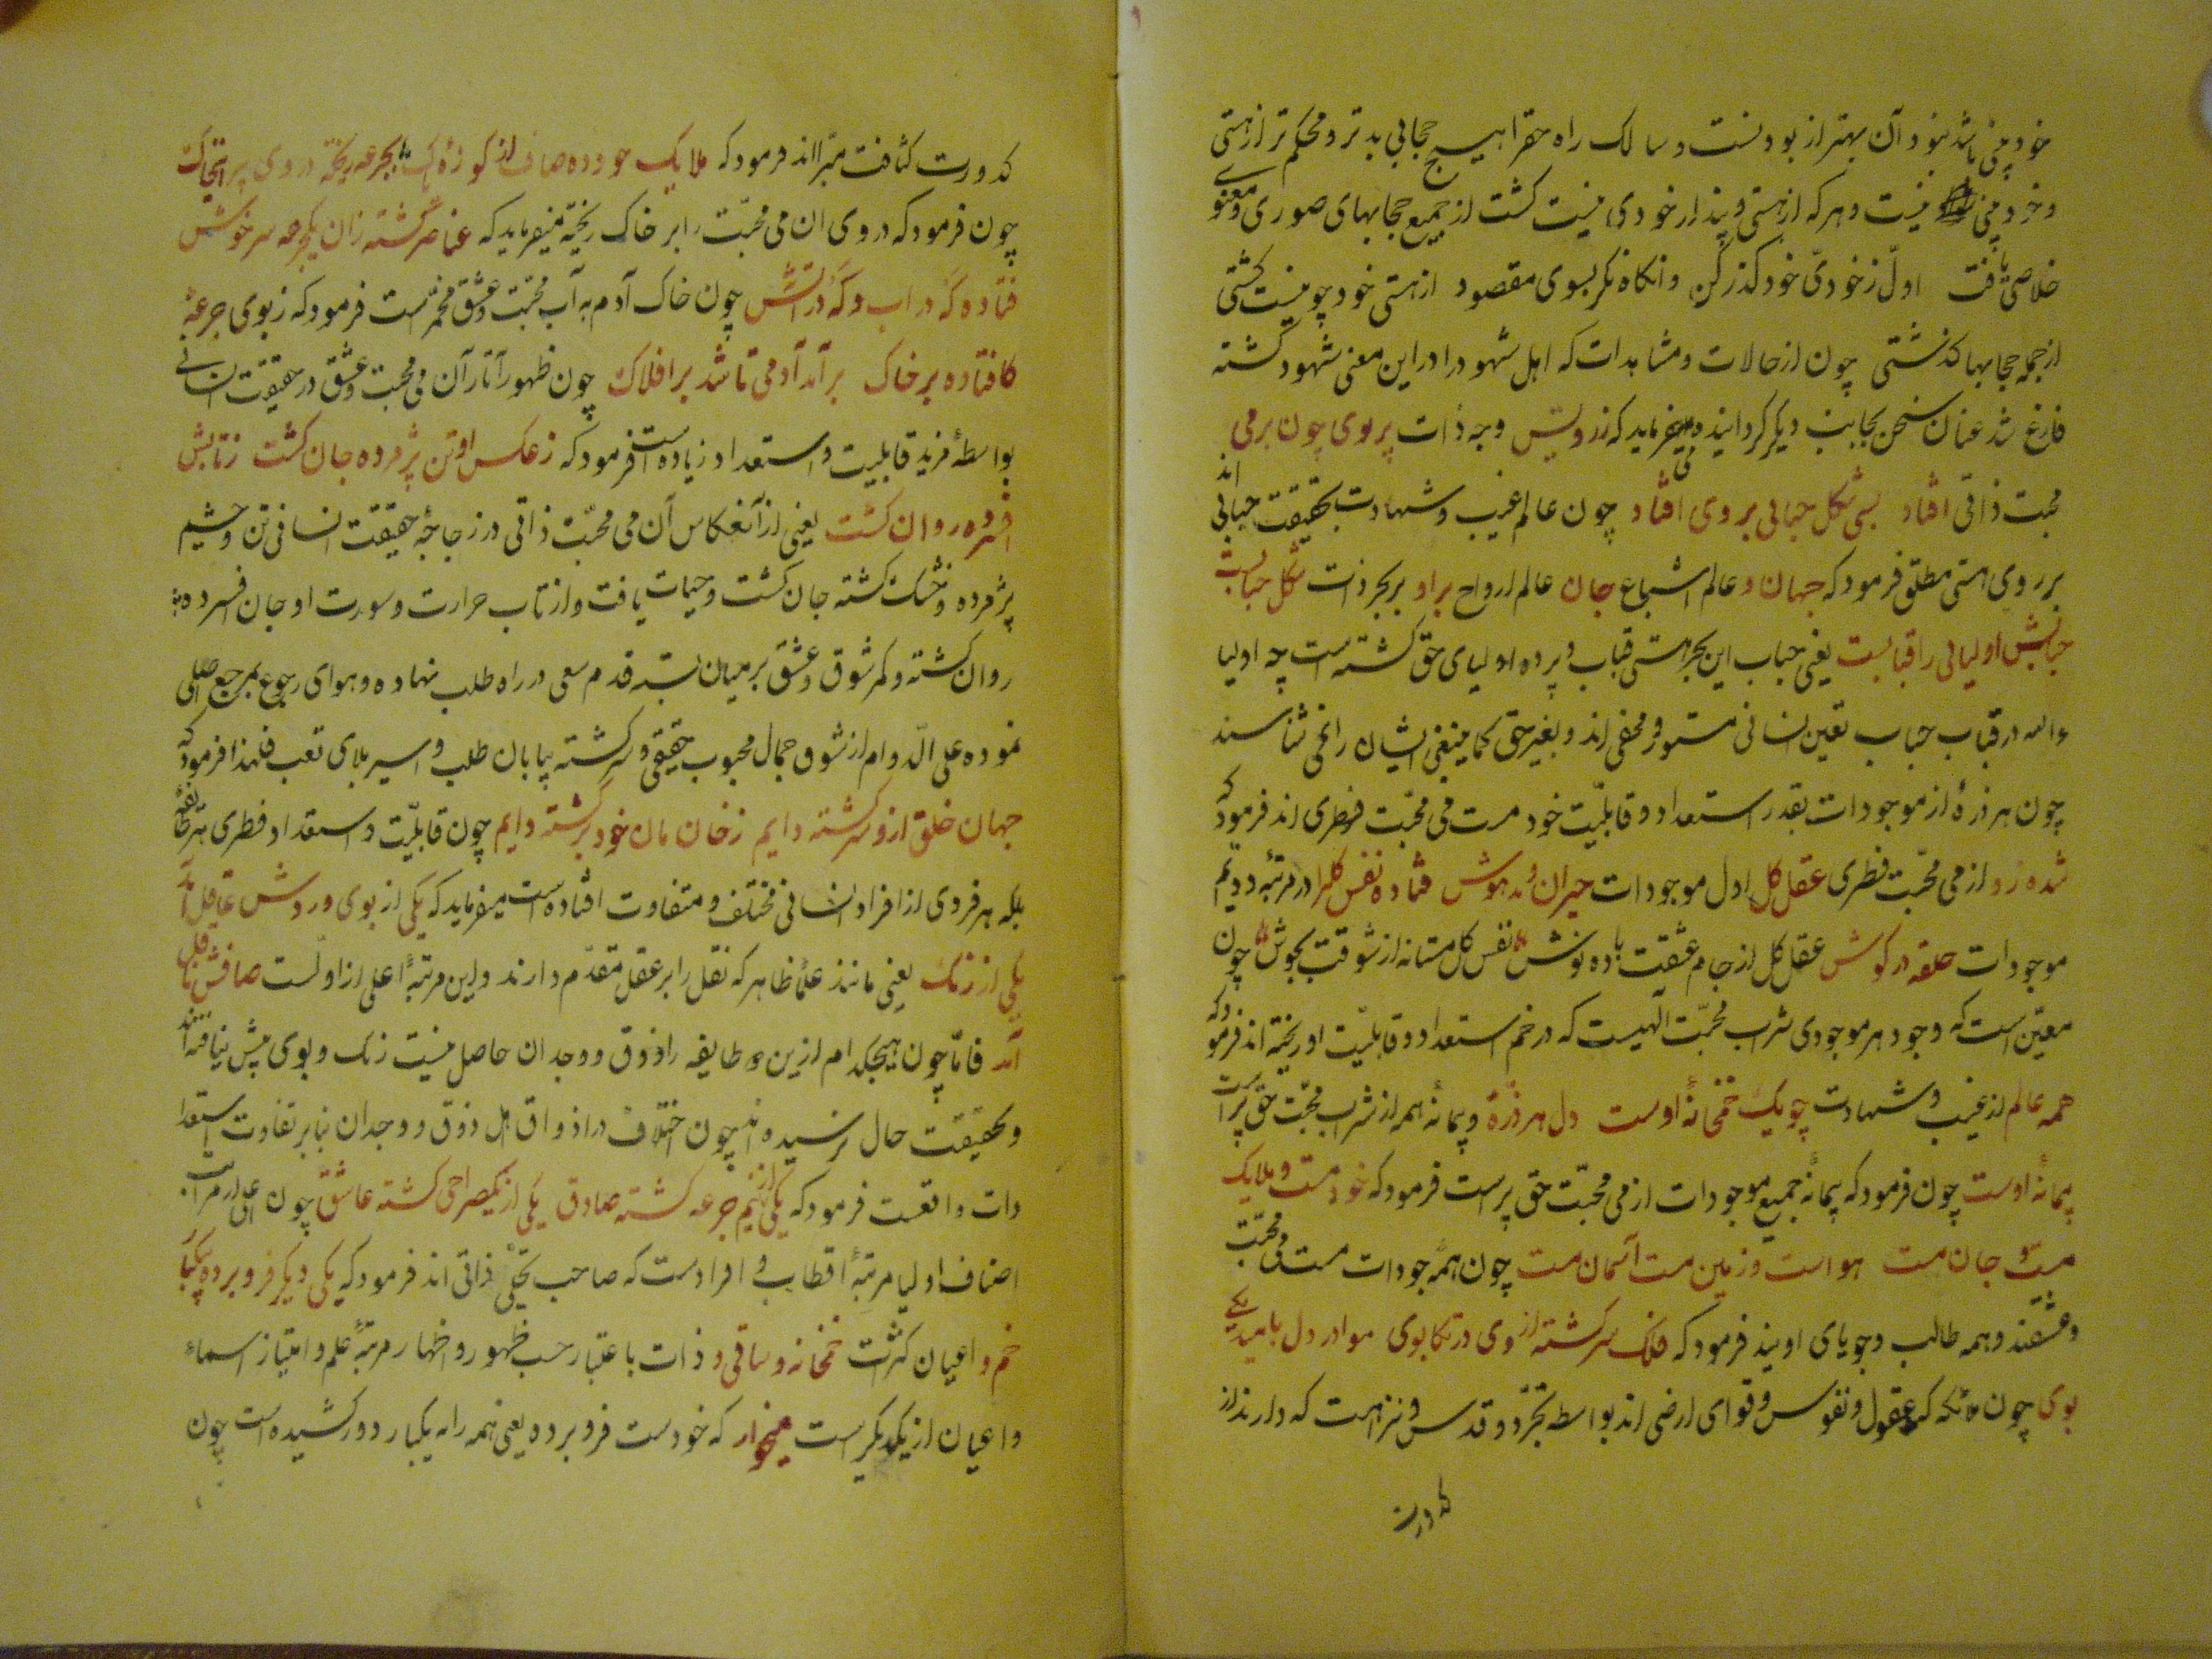 خودبینی باشد نبود آن بهتر از بودنست و سالک راه حقرا هیچ حجابی بدتر و محکم تر از هستی
و خودبینی نیست و هر که از هستی و پندار خودی نیست گشت از جمیع حجابهای صوری و معنوی
خلاصی یافت اول ز خودی خود گذر کن وانگاه نگر بسوی مقصود از هستی خود چو نیست گشتی
از جمله حجابها گذشتی چون از حالات و مشاهدات که اهل شهود را در این معنی شهود گشته
فارغ شد عنان سخن بجانب دیگر گردانیده میفرماید که ز رویش وجه ذات پرتوی چون بر می
محبت ذاتی افتاد بسی شکل حبابی بر وی افتاد چون عالم غیب و شهادت بحقیقت حبابی اند
بر روی هستی مطلق فرمود که جهان و عالم اشباح جان عالم ارواح بر او بر بحر ذات شکل حبابست
حبابش اولیائی را قبابست یعنی حباب این بحر هستی قباب و پرده اولیای حق گشته است چه اولیا
ء الله در قباب حباب تعین انسانی مستور و مخفی اند و بغیر حق کما ینبغی ایشان را نمی شناسند
چون هر ذرهٔ از موجودات بقدر استعداد و قابلیت خود مست می محبت فطری اند فرمود که
شده زو از می محبت فطری عقل کل اول موجودات حیران و مدهوش فتاده نفس کلرا در مرتبه دویم
موجودات حلقه در گوش عقل کل از جام عشقت باده نوش نفس کل مستانه از شوقت بجوش چون
معین است که وجود هر موجودی شراب محبت الهیست که در خم استعداد و قابلیت او ریخته اند فرمود که
همه عالم از غیب و شهادت چو یک خمخانهٔ اوست دل هر ذرهٔ و پیمانهٔ همه از شراب محبت حق پر است
پیمانهٔ اوست چون فرمود که پیمانهٔ جمیع موجودات از می محبت حق پر است فرمود که خرد مست و ملایک
مست و جان مست هوا مست و زمین مست آسمان مست چون همه موجودات مست می محبت
و عشقند و همه طالب و جویای اویند فرمود که فلک سرگشته از وی در تکاپوی هوا در دل بامید یکی
بوی چون ملائکه که عقول و نفوس و قوای ارضی اند بواسطه تجرد و قدس و نزاهت که دارند از
کدورت
کدورت کثافت مبرا اند فرمود که ملایک خورده صاف از کوزهٔ پاک بجرعه ریخته دردی بر این خاک
چون فرمود که دردی ان می محبت را بر خاک ریخته میفرماید که عناصر گشته زان یکجرعه سرخوش
فتاده گه در اب و گه در اتش چون خاک آدم به آب محبت و عشق مخمر است فرمود که ز بوی جرعهٔ
کافتاده بر خاک برآمد آدمی تا شد بر افلاک چون ظهور آثار آن می محبت و عشق در حقیقت انسانی
بواسطهٔ مزید قابلیت و استعداد زیاده است فرمود که ز عکس او تن پژمرده جان گشت ز تابش
افسرده روان گشت یعنی از انعکاس آن می محبت ذاتی در زجاجهٔ حقیقت انسانی تن و جسم
پژمرده و خشک گشته جان گشت و حیات یافت و از تاب حرارت و سورت او جان افسرده
روان گشته و کمر شوق و عشق بر میان بسته قدم سعی در راه طلب نهاده و هوای رجوع بمرجع اصلی
نموده علی الدوام از شوق جمال محبوب حقیقی سرگشته بیابان طلب و اسیر بلای تعب فلهذا فرمود که
جهان خلق ازو سرگشته دایم ز خان مان خود برگشته دایم چون قابلیت و استعداد فطری هر طایفهٔ
بلکه هر فردی از افراد انسانی مختلف و متفاوت افتاده است میفرماید که یکی از بوی دردش عاقل آمد
یکی از رنگ یعنی مانند علمأ ظاهر که نقل را بر عقل مقدم دارند و این مرتبهٔ اعلی از اولست صافش ناقل
آمد فاما چون هیچکدام ازین دو طایفه را ذوق و وجدان حاصل نیست رنگ و بوی بیش نیافته اند
و بحقیقت حال نرسیده اند چون اختلاف در اذواق اهل ذوق و وجدان بنابر تفاوت استعدا
دات واقعست فرمود که یکی از نیم جرعه گشته صادق یکی از یکصراحی گشته عاشق چون اعلی از مراتب
اصناف اولیا مرتبهٔ اقطاب و افرادست که صاحب تجلی ذاتی اند فرمود که یکی دیگر فرو برده بیکبار
خم و اعیان کثرت خمخانه و ساقی و ذات باعتبار حب ظهور و اظهار مرتبهٔ علم و امتیاز اسماء
و اعیان از یکدیگر است میخوار که خودست فرو برده یعنی همه را به یکبار در کشیده است چون